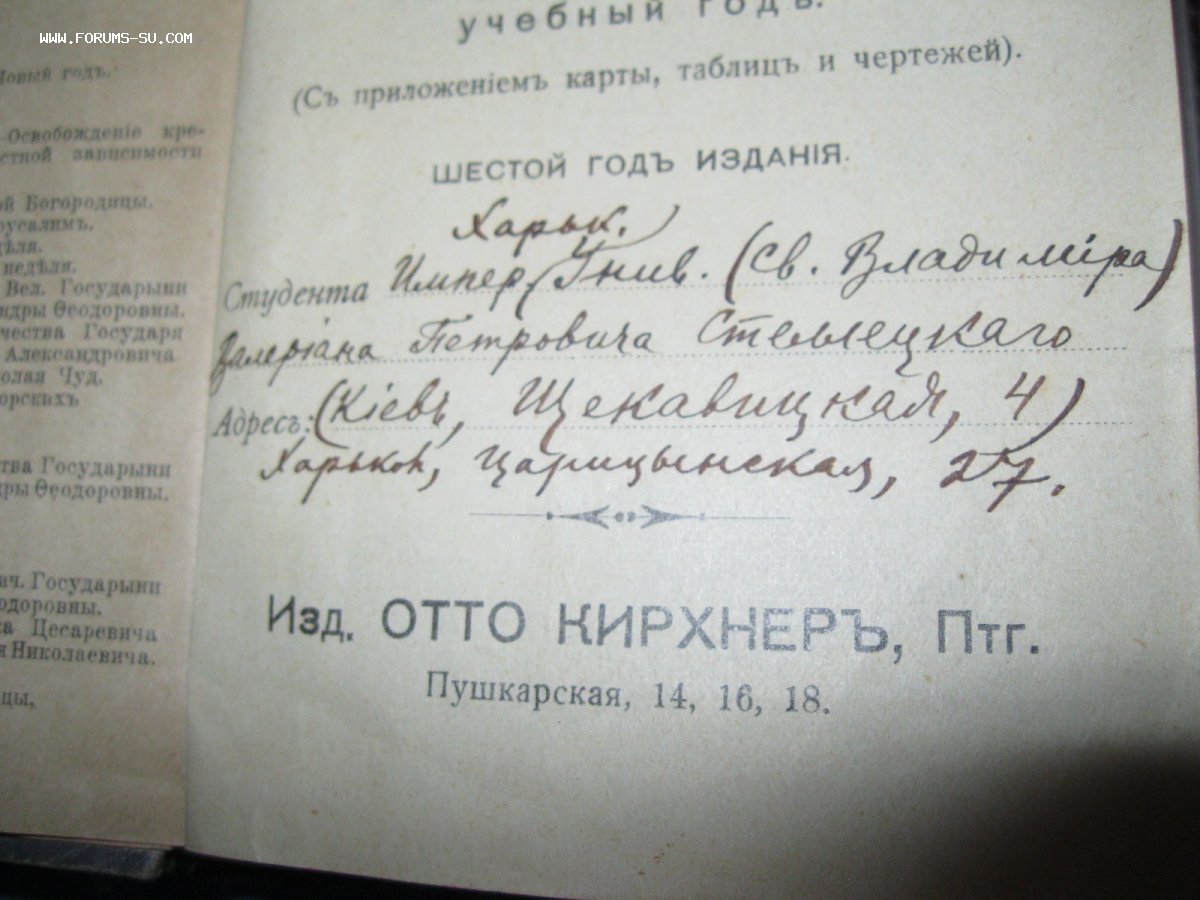 WWW.FORUMS-SU.COM
Новый годъ.
Освобожденіе кре-
стной зависимости
ой Богородицы.
русалимъ.
дѣля.
недѣля.
Вел. Государыни
ндры Ѳеодоровны.
чества Государя
Александровича
колая Чуд.
орскихъ
тва Государыни
дры Ѳеодоровны.
ич. Государыни
одоровны.
ка Цесаревича
я Николаевича.
цы,
учебный годъ.
(Съ приложеніемъ карты, таблицъ и чертежей).
ШЕСТОЙ ГОДЪ ИЗДАНІЯ.
Харьк.
Студента Импер. Унив. (Св. Владиміра)
Валеріана Петровича Стеллецкаго
Адресъ: (Кіевъ, Щекавицкая, 4)
Харьков, Царицынская, 27.
Изд. ОТТО КИРХНЕРЪ, Птг.
Пушкарская, 14, 16, 18.